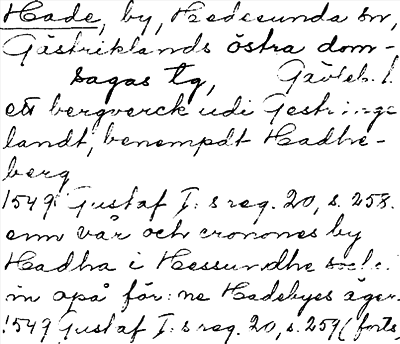 Hade, by, Hedesunda sn,
Gästriklands östra dom-
sagas tg, Gävleb. l.
ett bergverck udi Gestringe
landt, benempdt Hadhe-
berg
1549 Gustaf I:s reg. 20, s. 258.
enn vår och cronones by
Hadha i Hessundhe
in opå för:ne Hadebyes äger.
1549 Gustaf I:s reg. 20, s. 259 (forts.